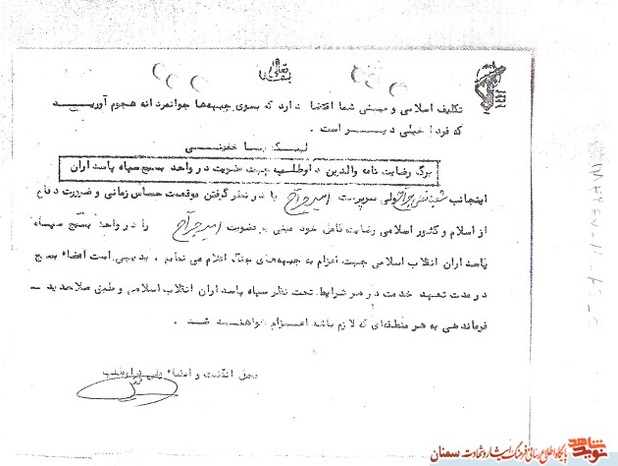 بسمه تعالی
تکلیف اسلامی و میهنی شما اقتضا دارد که بسوی جبهه‌ها جوانمردانه هجوم آورید
که فردا خیلی دیر است .
لبیک یا خمینی
برگ رضایت نامه والدین داوطلب جهت عضویت در واحد بسیج سپاه پاسداران
اینجانب ولی سرپرست با در نظر گرفتن موقعیت حساس زمانی و ضرورت دفاع
از اسلام و کشور اسلامی رضایت کامل خود مبنی بر عضویت را در واحد بسیج سپاه
پاسداران انقلاب اسلامی جهت اعزام به جبهه‌های جنگ اعلام می نمایم . بدیهی است اعضاء بسیج
در مدت تعهد خدمت در هر شرایط تحت نظر سپاه پاسداران انقلاب اسلامی و طبق صلاحدید —
فرماندهی به هر منطقه‌ای که لازم باشد اعزام خواهند شد .
محل انگشت و امضاء
نوید شاهد پایگاه اطلاع رسانی فرهنگ ایثار و شهادت سمنان